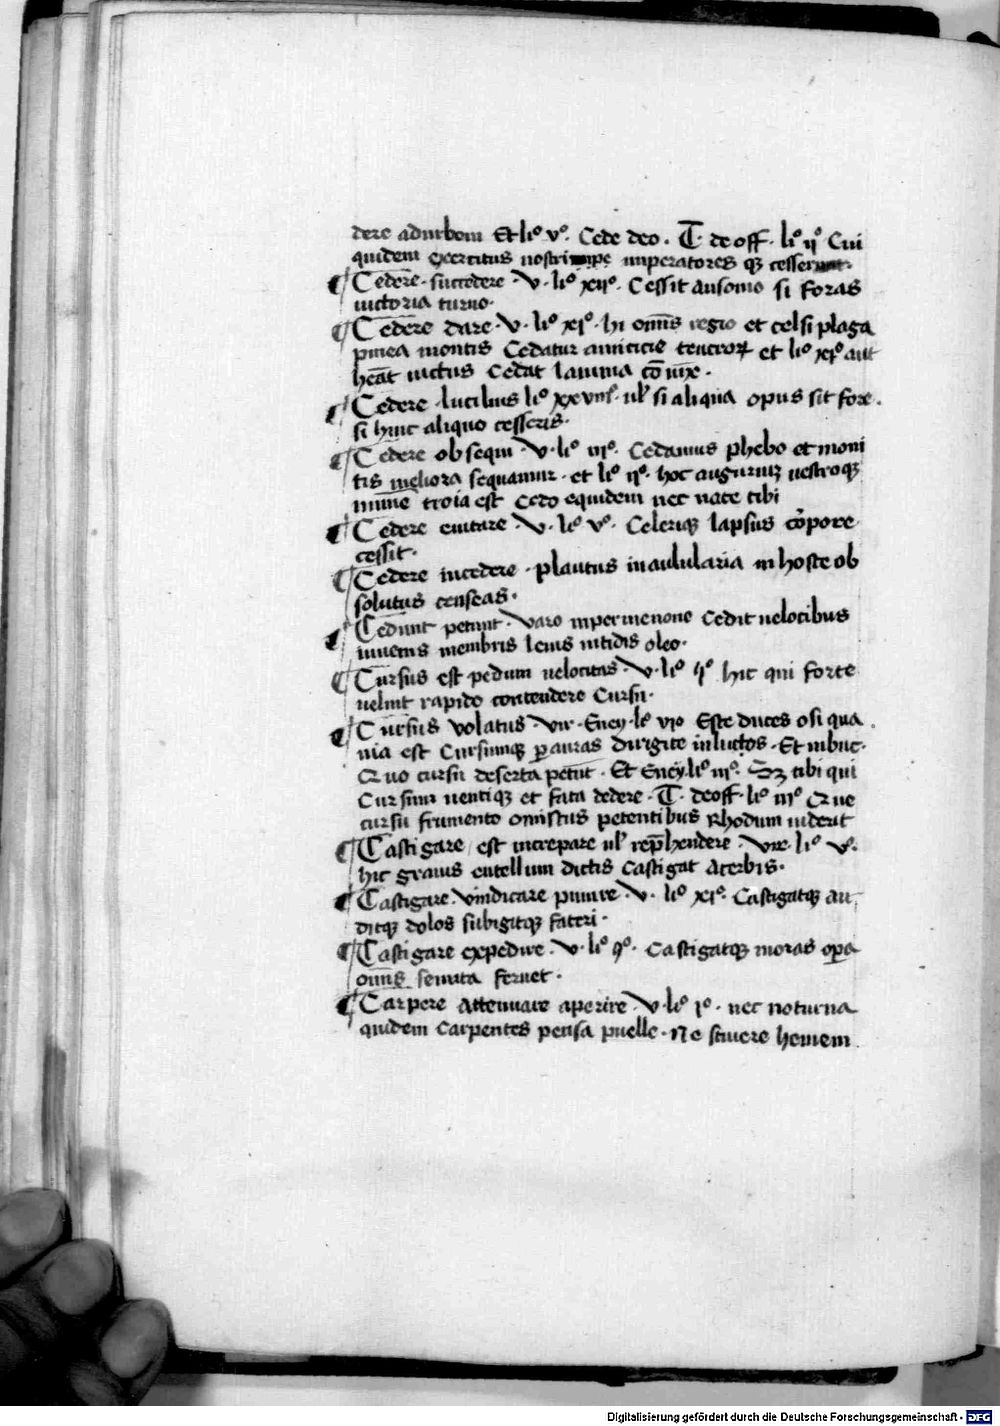 dere ad urbem Et liº vº. Cede deo. T. de off. liº ijº Cui
quidem exercitus nostri imperatores qȝ cesserunt.
¶ Cedere. succedere. V. liº xijº. Cessit ausonio si foras
uictoria turno.
¶ Cedere dare. V. liº xjº. hi omīs regio et celsi plaga
pinea montis Cedatur amicicie teucroꝝ et liº xjº aut
heāt uictus Cedat lauinia cōiux.
¶ Cedere. lucilius liº xxviijº. ul' si aliqua opus sit fore.
si hinc aliquo cesseris.
¶ Cedere obsequi. V. liº iijº. Cedamus phebo et moni
tis meliora sequamur. et liº ijº. hoc augurium uestroqȝ
numīe troia est Cedo equidem nec nate tibi
¶ Cedere euitare. V. liº vº. Celeriqȝ lapsus cōpore
cessit.
¶ Cedere incedere. plautus in aulularia in hoste ob
solutus censeas.
¶ Cedunt petunt. Varo inpermenone Cedit uelocibus
iuuenis membris leuis nitidis oleo.
¶ Cursus est pedum uelocitas. V. liº ijº hic qui forte
uelint rapido contendere Cursu.
¶ Cursus volatus. Vir. Eney. liº vjº Este duces o si qua
uia est Cursumqȝ ꝑ auras dirigite in lucos. Et in buc.
Quo cursu deserta petiut. Et Eney. liº iijº. Sȝ tibi qui
Cursum uentiqȝ et fata dedere. T. de off. liº iijº Que
cursu frumento onustus petentibus Rhodum uiderit
¶ Castigare est increpare ul' rep̄hendere. Vir. liº vº.
hic grauis entellum dictis castigat acerbis.
¶ Castigare. Vindicare punire. V. liº xjº. Castigatqȝ au
ditqȝ dolos subigitqȝ fateri.
¶ Castigare expedire. V. liº qº. Castigatqȝ moras oꝑa
omīs semita feruet.
¶ Carpere Attenuare aperire. V. liº jº. nec noturna
quidem Carpentes pensa puelle. Ne sciuere hemem
Digitalisierung gefördert durch die Deutsche Forschungsgemeinschaft - DFG